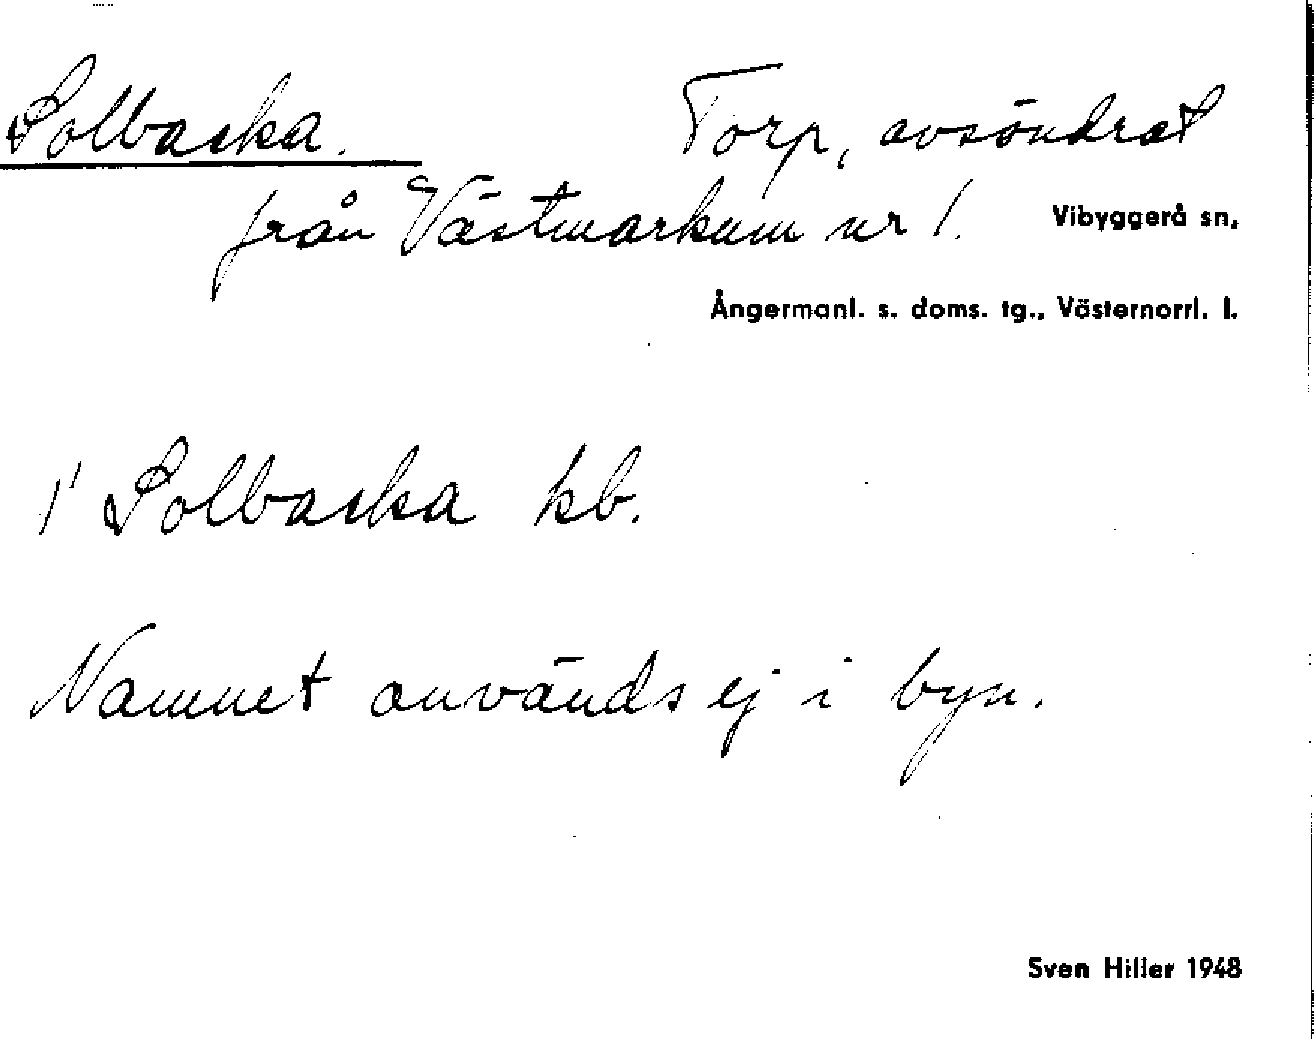 Solbacka. Torp, avsöndrat
från Västmarkum nr 1. Vibyggerå sn,
Ångermanl. s. doms. tg., Västernorrl. l.
1' Solbacka kb.
Namnet används ej i byn.
Sven Hiller 1948